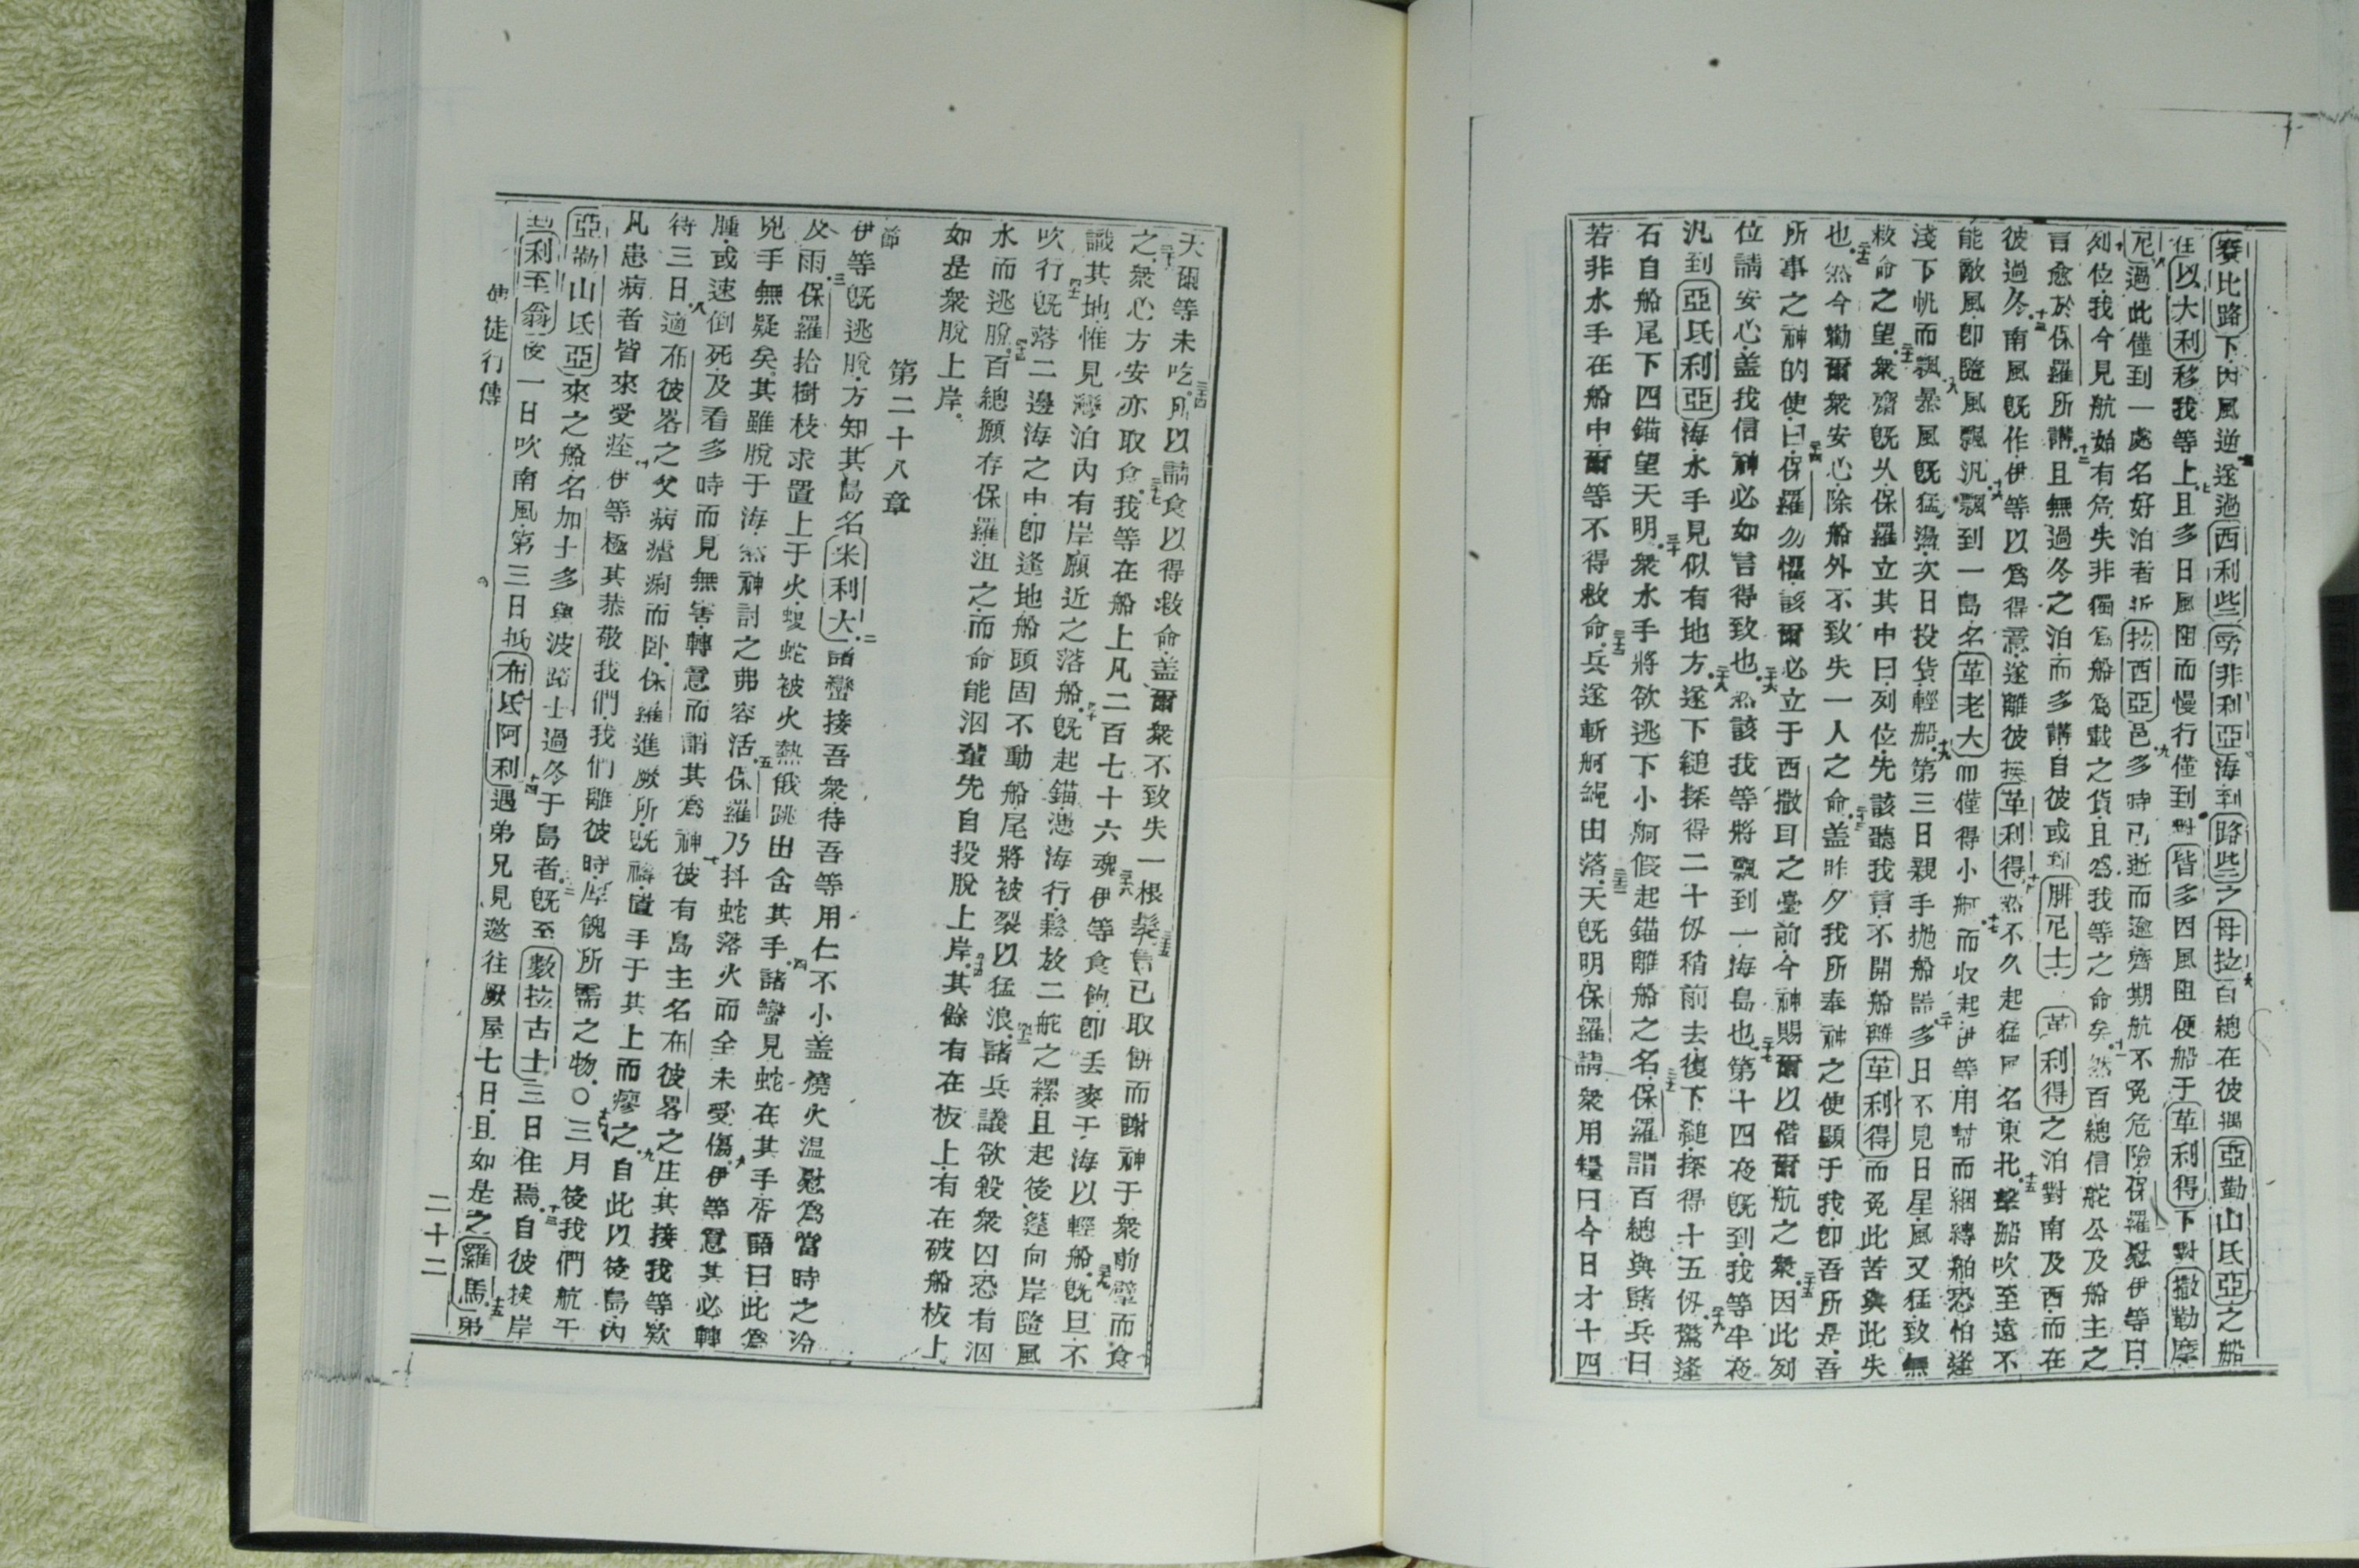 賽比路下因風逆遂過西利些嘮非利亞海到路些之母拉百總在彼遇亞勒山氏亞之船
往以大利移我等上且多日風阻而慢行僅到對皆多因風阻便船于革利得下對撒勒摩
尼過此僅到一處名好泊者近拉西亞邑多時已逝而逾齊期航不免危險保羅慰伊等曰
列位我今見航始有危失非獨為船為載之貨且為我等之命矣然百總信舵公及船主之
言愈於保羅所講且無過冬之泊而多講自彼或到腓尼士革利得之泊對南及西而在
彼過冬南風既作伊等以為得意遂離彼挨革利得然不久起猛風名東北擊船吹至遠不
能敵風即隨風飄汎飄到一島名革老大而僅得小舸而收起伊等用幇而綑縳舶恐怕逢
淺下帆而飄暴風既猛盪次日投貨輕船第三日親手拋船器多日不見日星風又猛致無
救命之望衆齋既久保羅立其中曰列位先該聽我言不開船離革利得而免此苦與此失
也然今勸爾衆安心除船外不致失一人之命蓋昨夕我所奉神之使顯于我即吾所是吾
所事之神的使曰保羅勿懼該爾必立于西撒耳之臺前今神賜爾以偕爾航之衆因此列
位請安心蓋我信神必如言得致也然該我等將飄到一海島也第十四夜既到我等半夜
汎到亞氏利亞海水手見似有地方遂下縋探得二十仭稍前去復下縋探得十五仭驚逢
石自船尾下四錨望天明衆水手將欲逃下小舸假起錨離船之名保羅謂百總與諸兵曰
若非水手在船中爾等不得救命兵遂斬舸繩由落天既明保羅請衆用糧曰今日才十四
天爾等未吃所以請食以得救命蓋爾衆不致失一根髮言已取餅而謝神于衆前擘而食
之衆心方安亦取食我等在船上凡二百七十六魂伊等食飽即丟麥于海以輕船既旦不
識其地惟見灣泊內有岸願近之落船既起錨憑海行鬆放二舵之縲且起後篷向岸隨風
吹行既落二邊海之中即逢地船頭固不動船尾將被裂以猛浪諸兵議欲殺衆囚恐有泅
水而逃脫百總願存保羅沮之而命能泅輩先自投脫上岸其餘有在板上有在破船板上
如是衆脫上岸
第二十八章
節
伊等既逃脫方知其島名米利大諸蠻接吾衆待吾等用仁不小蓋燒火温慰為當時之冷
及雨保羅拾樹枝求置上于火蝮蛇被火熱俄跳出含其手諸蠻見蛇在其手斉語曰此為
兇手無疑矣其雖脫于海然神討之弗容活保羅乃抖蛇落火而全未受傷伊等意其必轉
腫或速倒死及看多時而見無害轉意而謂其為神彼有島主名布彼畧之庄其接我等欵
待三日適布彼畧之父病瘧痢而卧保羅進厥所既禱置手于其上而瘳之自此以後島內
凡患病者皆來受痊伊等極其恭敬我們我們離彼時厚餽所需之物〇三月後我們航于
亞勒山氏亞來之船名加士多與波路士過冬于島者既至數拉古士三日住焉自彼挨岸
利至翁後一日吹南風第三日抵布氏阿利遇弟兄見邀往厥屋七日且如是之羅馬弟
使徒行傳
二十二